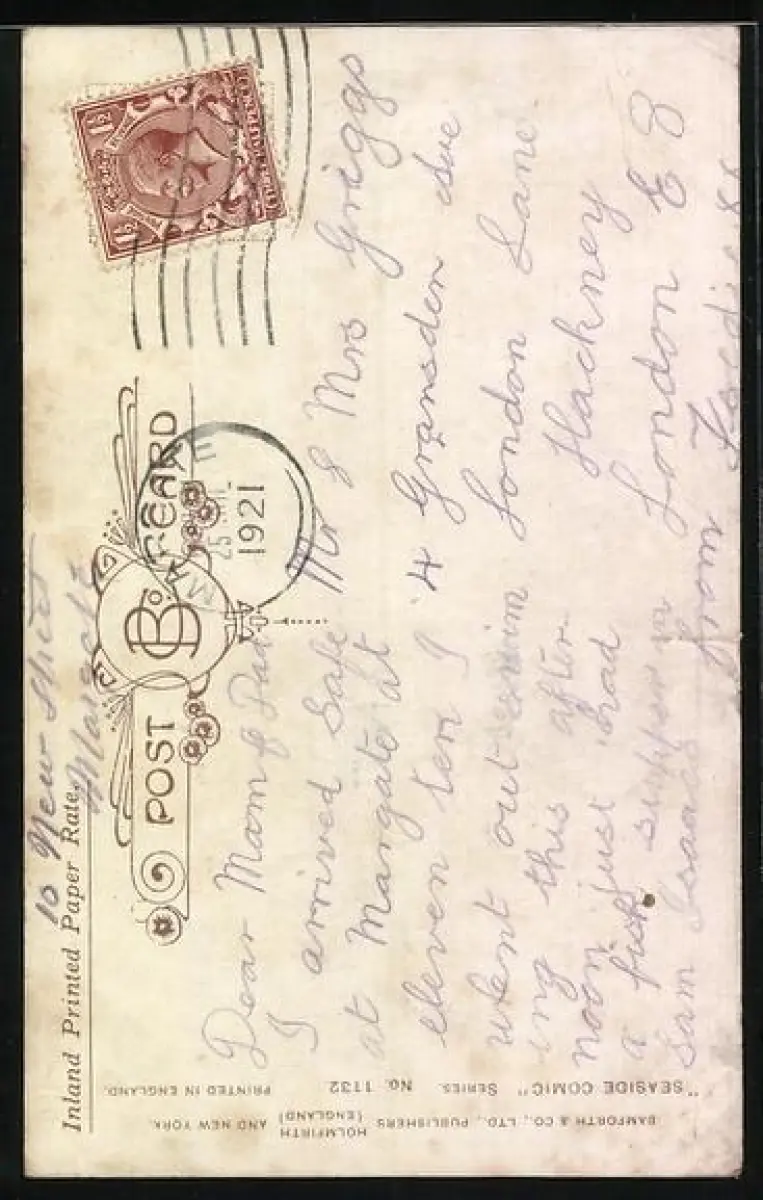 10 New Street
Margate
Inland Printed Paper Rate.
POST CARD
B & Co
MARGATE
25 JUL
1921
1½ 1½
Dear Mam & Dad
I arrived safe
at Margate at
eleven ten I
went out swim
ing this after.
noon just had
a fish supper in
Sam Isaacs
Mr & Mrs Griggs
4 Gransden Ave
London Lane
Hackney
London E 8
from
"SEASIDE COMIC" SERIES. No. 1132. PRINTED IN ENGLAND.
BAMFORTH & CO., LTD., PUBLISHERS HOLMFIRTH (ENGLAND) AND NEW YORK.